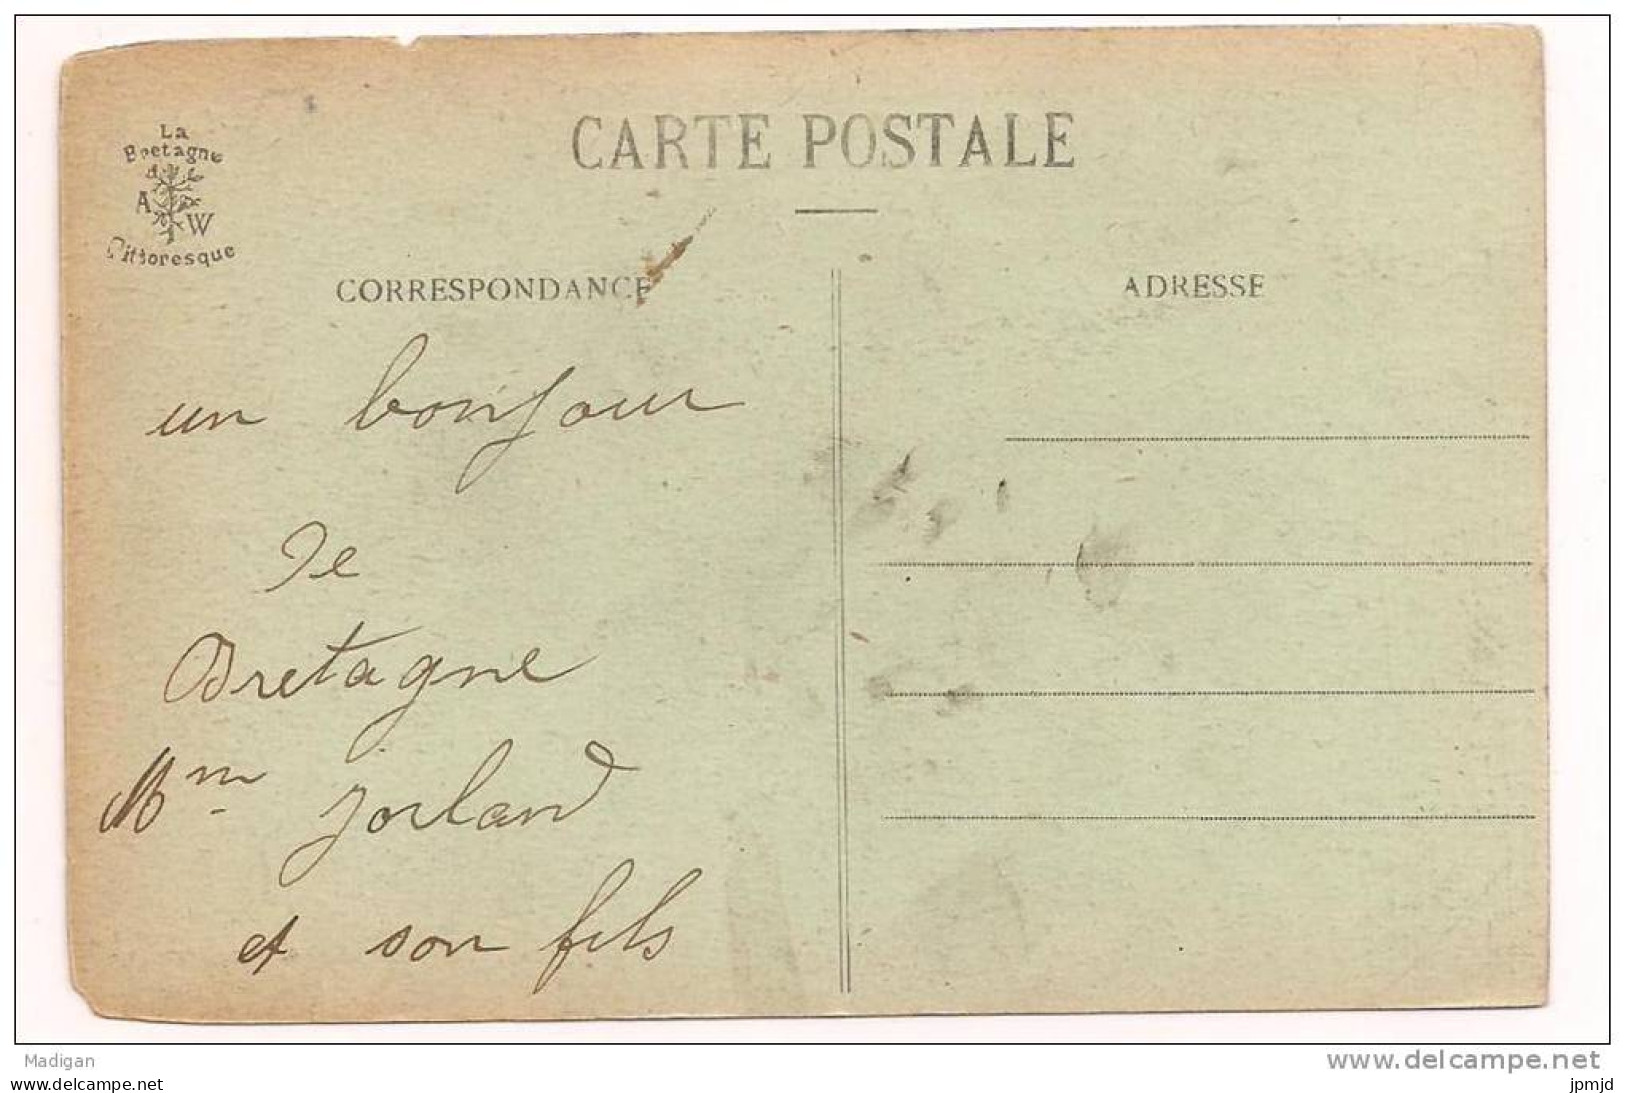 La
Bretagne
A W
Pittoresque
CARTE POSTALE
CORRESPONDANCE
ADRESSE
un bonjour
de
Bretagne
Mm Jorland
et son fils
Madigan
www.delcampe.com
www.delcampe.net
jpmjd